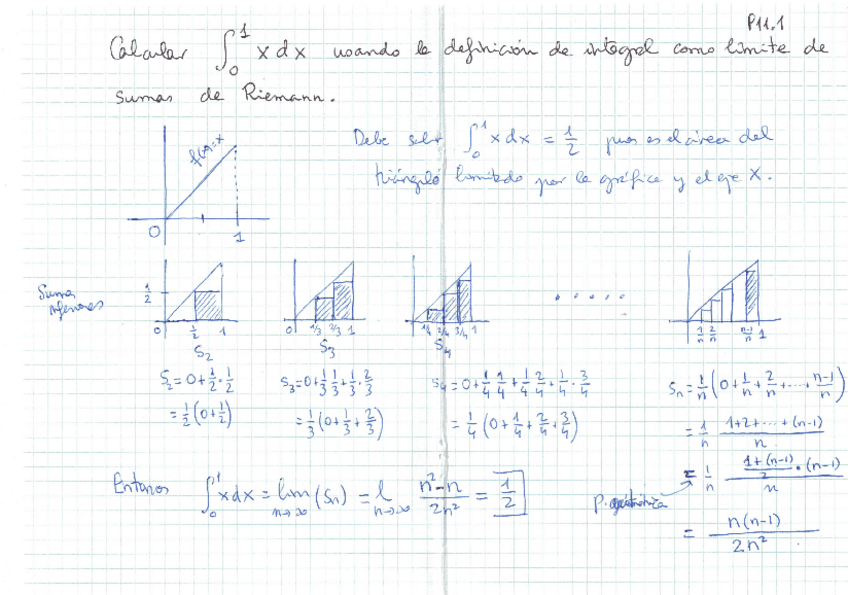 P11.1
Calcular ∫₀¹ x dx usando la definición de integral como límite de
sumas de Riemann.
Debe salir ∫₀¹ x dx = 1/2 pues es el área del
triángulo limitado por la gráfica y el eje X.
f(x)=x
0 1
Sumas
inferiores
1/2
0 1/2 1
0 1/3 2/3 1
0 1/4 2/4 3/4 1
......
1/n 2/n n-1/n 1
S₂ S₃ S₄
S₂ = 0 + 1/2 · 1/2
= 1/2 (0 + 1/2)
S₃ = 0 + 1/3 · 1/3 + 1/3 · 2/3
= 1/3 (0 + 1/3 + 2/3)
S₄ = 0 + 1/4 · 1/4 + 1/4 · 2/4 + 1/4 · 3/4
= 1/4 (0 + 1/4 + 2/4 + 3/4)
Sₙ = 1/n (0 + 1/n + 2/n + ... + n-1/n)
= 1/n (1+2+...+(n-1))/n
= 1/n ((1+(n-1))/2 · (n-1))/n
P. aritmética
= n(n-1)/2n²
Entonces ∫₀¹ x dx = lim n→∞ (Sₙ) = l n→∞ (n²-n)/2n² = 1/2